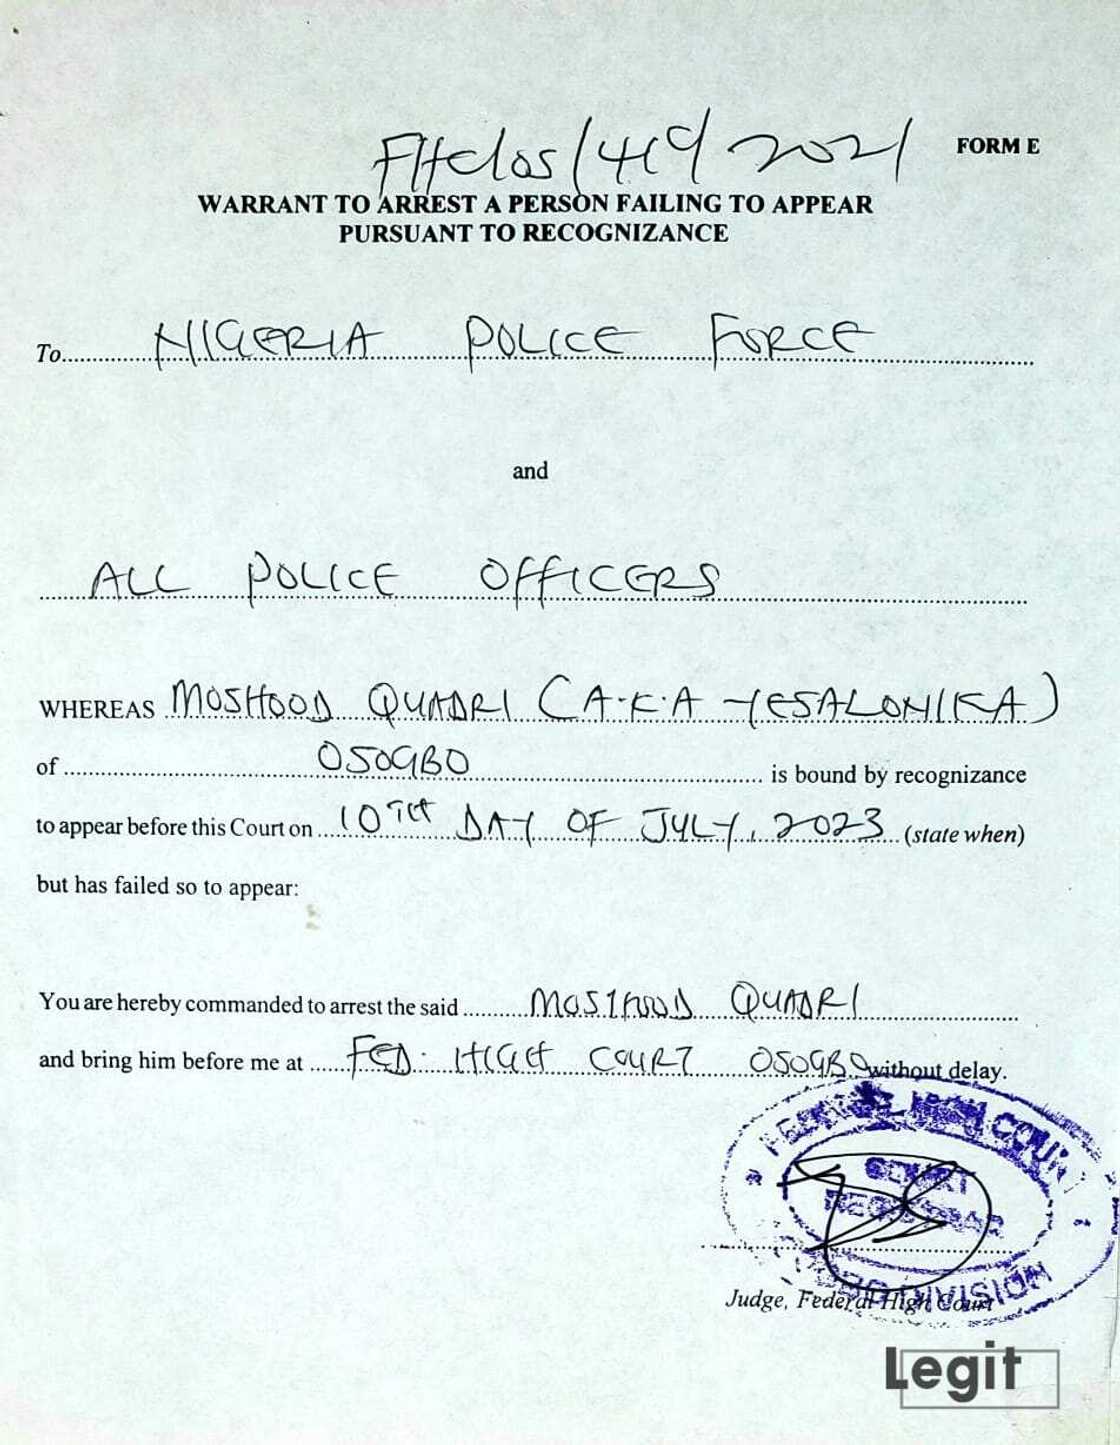 FHC/OS/41C/2021
FORM E
WARRANT TO ARREST A PERSON FAILING TO APPEAR
PURSUANT TO RECOGNIZANCE
To NIGERIA POLICE FORCE
and
ALL POLICE OFFICERS
WHEREAS MOSHOOD QUADRI (A.K.A YESALONIKA)
of OSOGBO is bound by recognizance
to appear before this Court on 10TH DAY OF JULY, 2023 (state when)
but has failed so to appear:
You are hereby commanded to arrest the said MOSHOOD QUADRI
and bring him before me at FED. HIGH COURT OSOGBO without delay.
FEDERAL HIGH COURT
COURT
REGISTRAR
DIVISION
Judge, Federal High Court
Legit